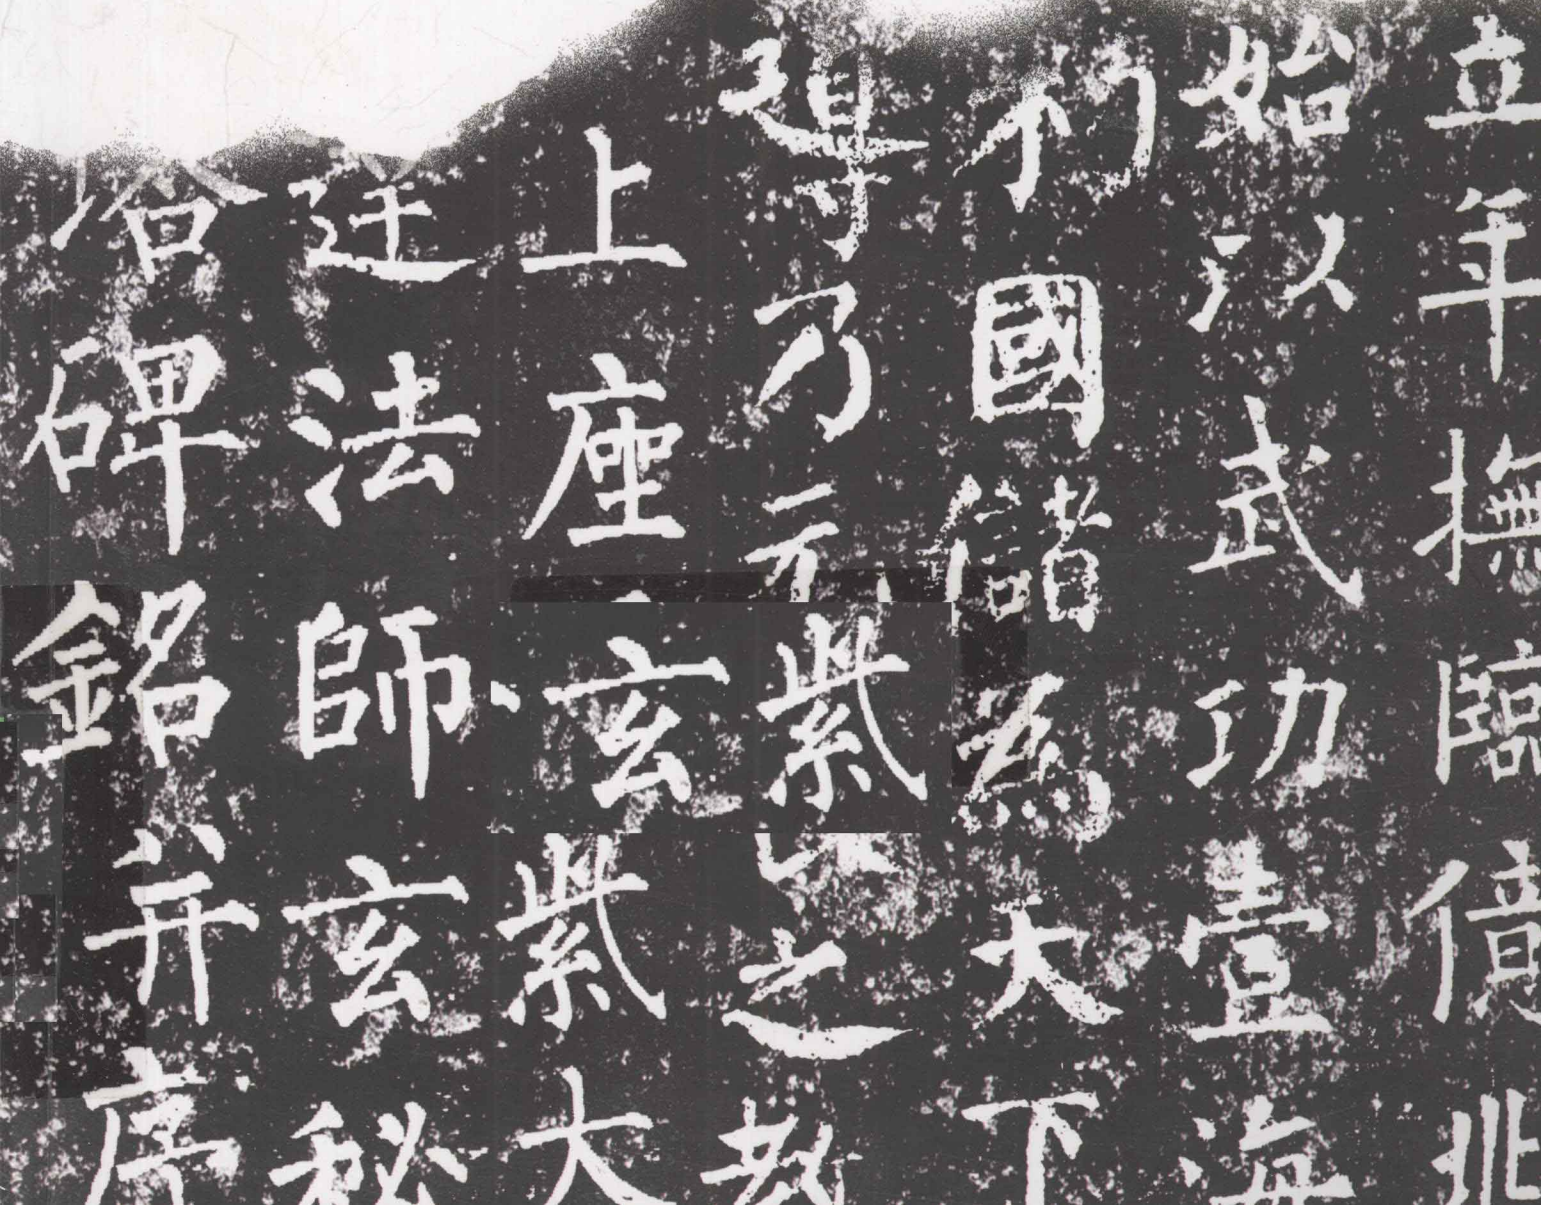 立年撫臨億兆
始以武功壹海
國儲為天下
導乃元紫之教
上座玄紫大
達法師玄秘
塔碑銘并序